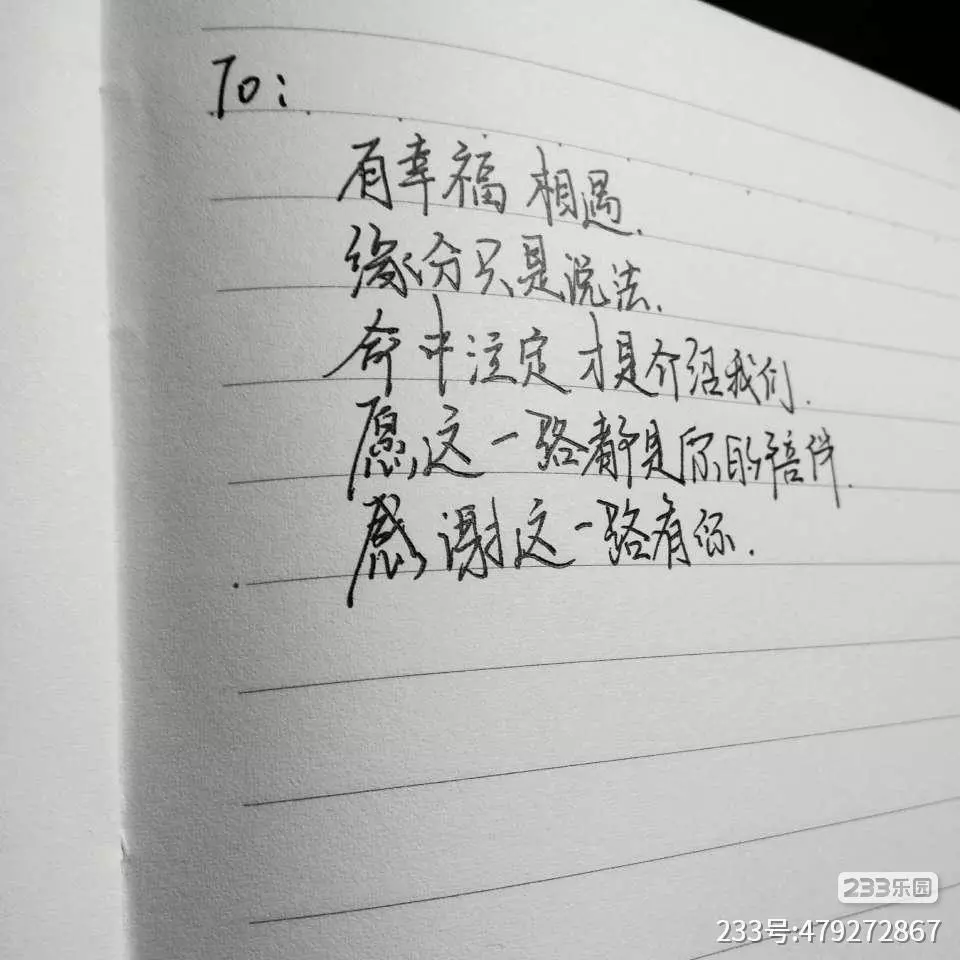 To:
有幸福 相遇.
缘份只是说法.
命中注定 才是介绍我们.
愿这一路都是你的陪伴.
感谢这一路有你.
233乐园
233号:479272867